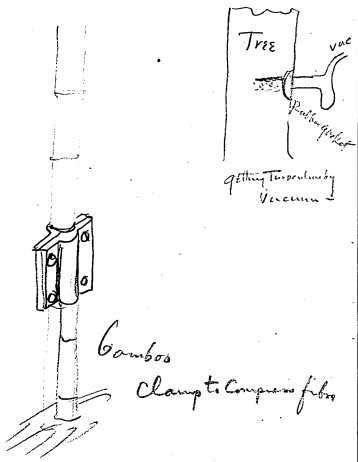 Tree
vac
Rubber gasket
getting Turpentine by
Vacuum -
Bamboo
Clamp to Compress fibre